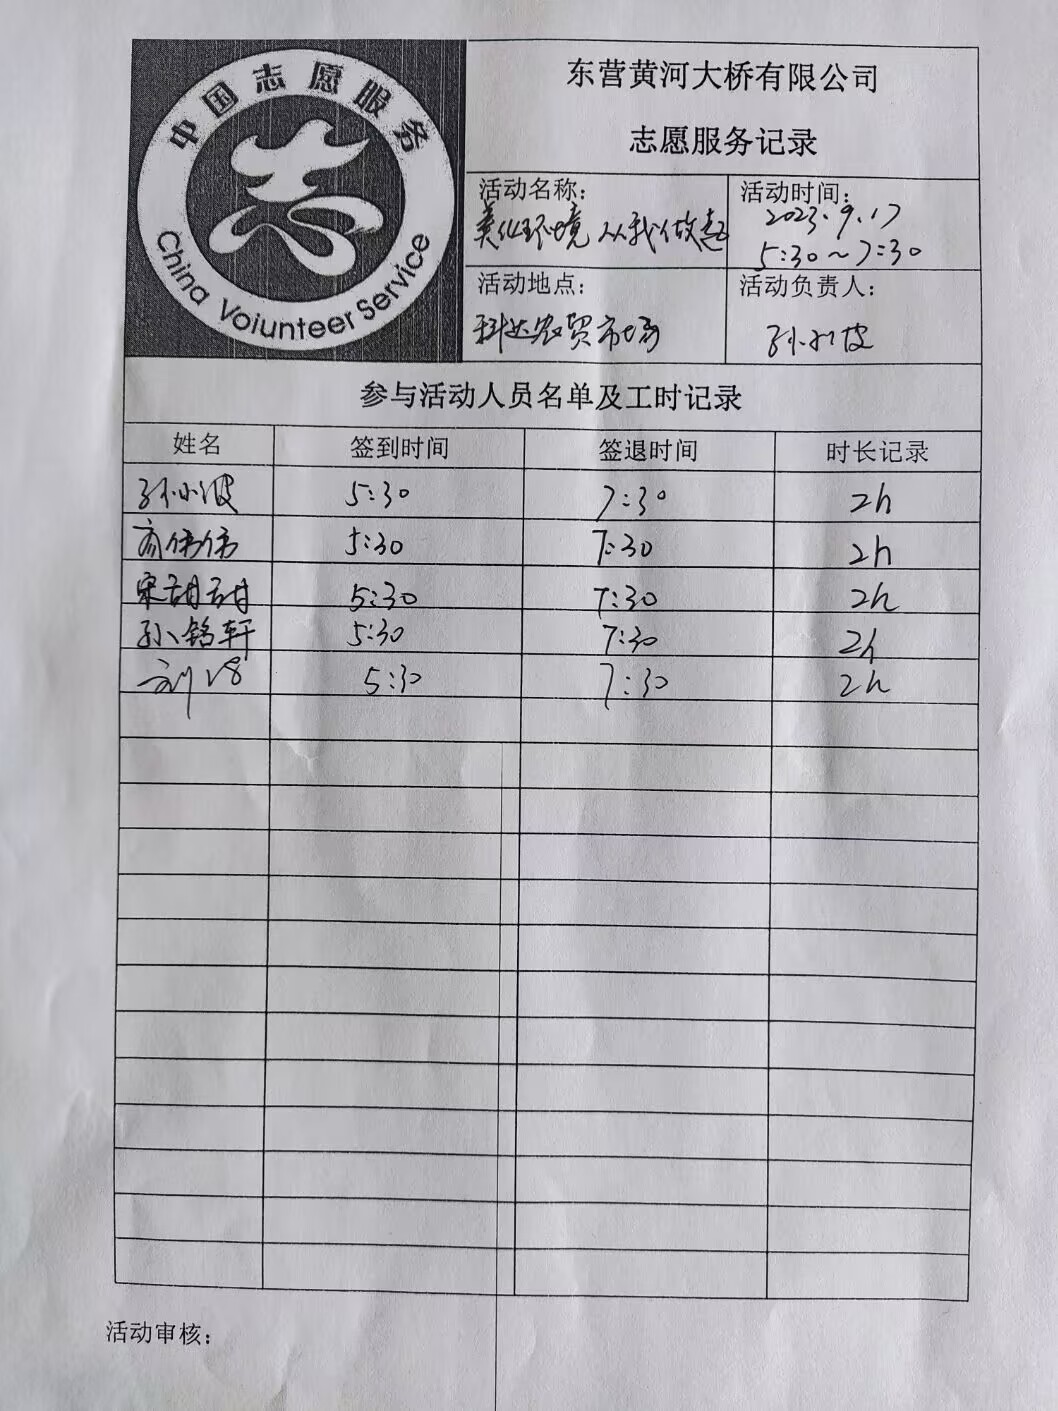 中国志愿服务
China Voiunteer Service
东营黄河大桥有限公司
志愿服务记录
活动名称：
美化环境 从我做起
活动时间：
2023.9.17
5:30～7:30
活动地点：
科达农贸市场
活动负责人：
孙小波
参与活动人员名单及工时记录
姓名 签到时间 签退时间 时长记录
孙小波 5:30 7:30 2h
伟伟 5:30 7:30 2h
宋甜甜 5:30 7:30 2h
孙铭轩 5:30 7:30 2h
刘 5:30 7:30 2h
活动审核：